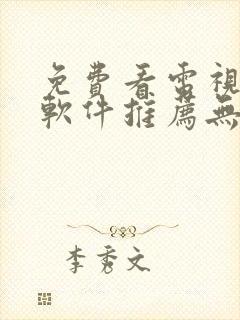 免費看電視
軟件推薦無
李秀文